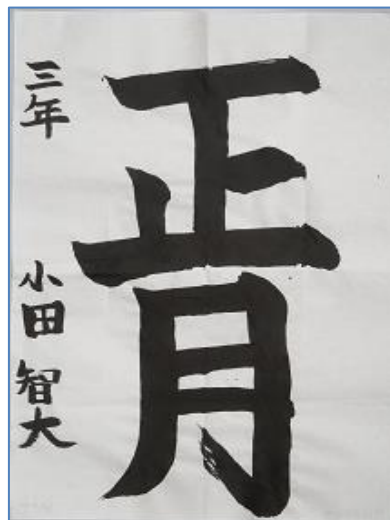 正月
三年 小田 智大